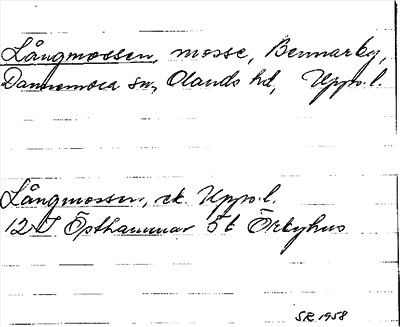 Långmossen, mosse, Bennarby,
Dannemora sn, Olands hd, Upps.l.
Långmossen, ek. Upps.l.
12 I Östhammar 5b Örbyhus
SR 1958